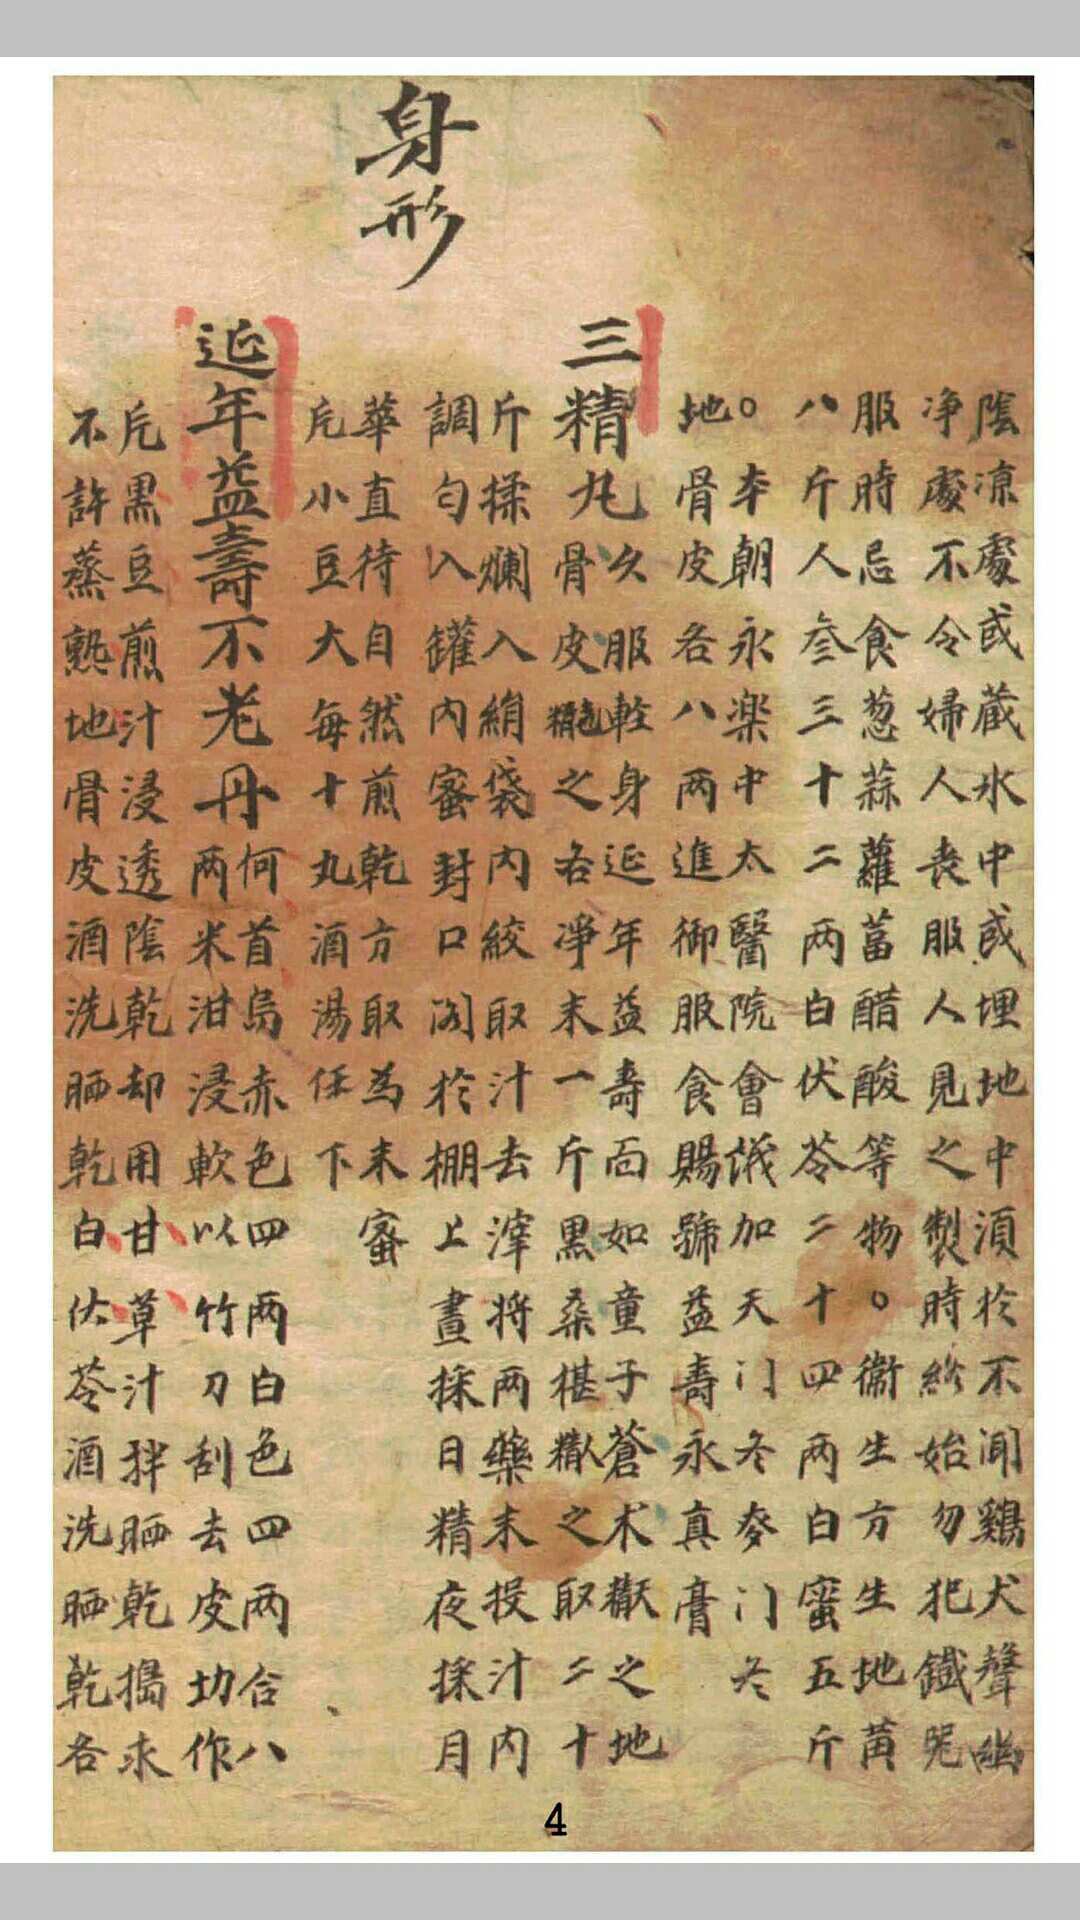 身形
陰凉處或蔵水中或埋地中湏於不聞鷄犬聲幽
净處不令婦人丧服人見之製時終始勿犯鐵器
服時忌食葱蒜蘿葍醋酸等物。衞生方生地黄
八斤人參三十二两白伏苓二十四两白蜜五斤
。夲朝永楽中太醫院會議加天门冬麥门冬
地骨皮各八两進御服食賜號益壽永真膏
三精丸
久服軽身延年益壽面如童子蒼术糤之地
骨皮糤之各净末一斤黒桑椹糤之取二十
斤揉爛入絹袋内絞取汁去滓将两藥末投汁内
調匀入罐内蜜封口閣於棚上晝採日精夜採月
華直待自然煎乾方取為末蜜
凢小豆大每十丸酒湯任下
延年益壽不老丹
何首烏赤色四两白色四两合八
两米泔浸軟以竹刀刮去皮切作
片黒豆煎汁浸透陰乾却用甘草汁拌晒乾搗末
不許蒸熟地骨皮酒洗晒乾白伏苓酒洗晒乾各
4